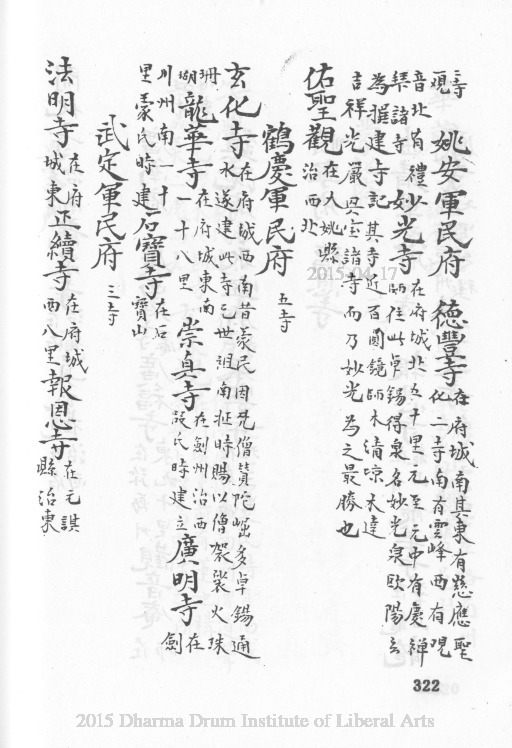 姚安軍民府 德豐寺 在府城南其東有慈應聖
化二寺南有雲峰西有覌
音北有禮
拜諸寺 妙光寺 在府城北五十里元至元中有慶禪
師住此卓錫得泉名妙光泉歐陽玄
為撰建寺記其寺近百圓鏡師木清凉木達
吉祥光嚴興寶諸寺而乃妙光為之最勝也
佑聖觀 在大姚縣
治西北
鶴慶軍民府 五寺
玄化寺 在府城西南昔蒙民因梵僧贊陀崛多卓錫通
水遂建此寺已世祖南征時賜以僧袈裟火珠
珊
瑚 龍華寺 在府城東南
一十八里 崇真寺 在劍州治西
段氏時建立 廣明寺 在
劍
川州南一十
里蒙氏時建 石寶寺 在石
寶山
武定軍民府 三寺
法明寺 在府
城東 正續寺 在府城
西八里 報恩寺 在元謀
縣治東
322
2015-04-17
2015 Dharma Drum Institute of Liberal Arts